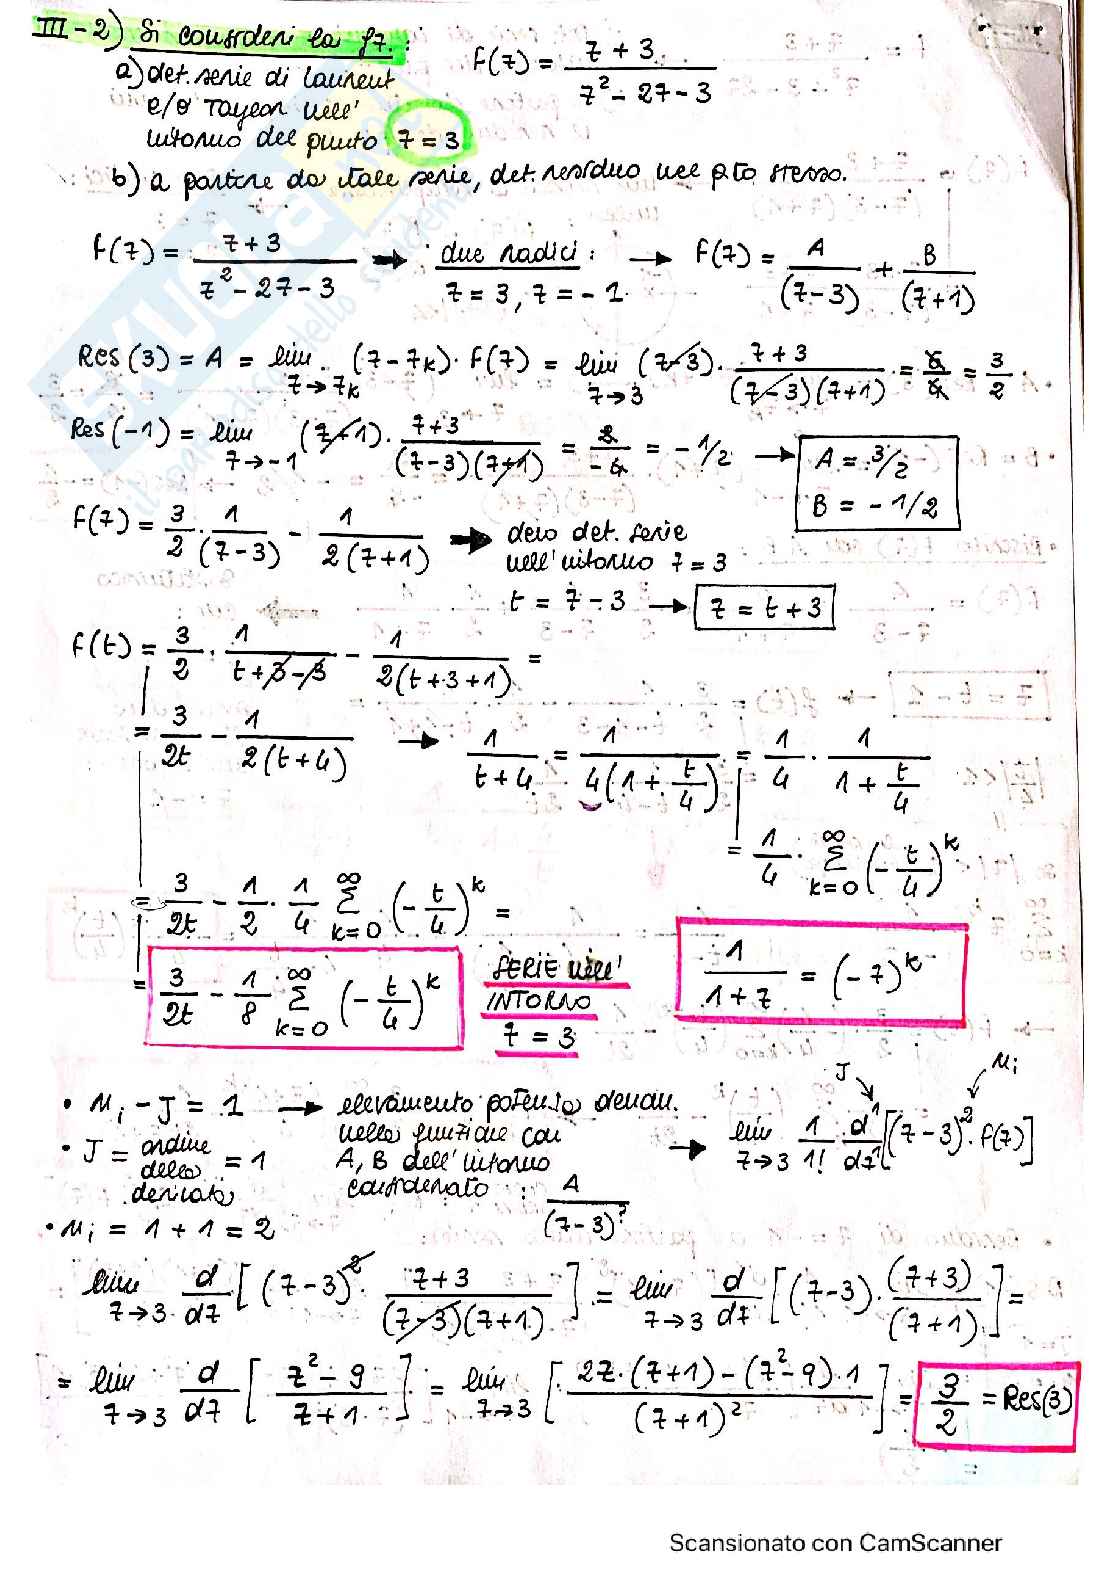 III-2) Si consideri la fz.:
f(z) = z+3 / z²-2z-3
a) det. serie di Laurent
e/o Taylor nell'
intorno del punto z = 3
b) a partire da tale serie, det. residuo nel pto stesso.
f(z) = z+3 / z²-2z-3 → due radici: z = 3, z = -1. → f(z) = A/(z-3) + B/(z+1)
Res(3) = A = lim z→zk (z-zk)·f(z) = lim z→3 (z-3)· z+3 / (z-3)(z+1) = 6/4 = 3/2.
Res(-1) = lim z→-1 (z+1)· z+3 / (z-3)(z+1) = 2/-4 = -1/2 → A = 3/2
B = -1/2
f(z) = 3/2 · 1/(z-3) - 1/2(z+1) → devo det. serie
nell'intorno z = 3
t = z-3 → z = t+3
f(t) = 3/2 · 1/t+3-3 - 1/2(t+3+1) =
= 3/2t - 1/2(t+4) → 1/t+4 = 1/4(1+t/4) = 1/4 · 1/1+t/4
= 1/4 · ∞Σk=0 (-t/4)^k
= 3/2t - 1/2 · 1/4 ∞Σk=0 (-t/4)^k =
= 3/2t - 1/8 ∞Σk=0 (-t/4)^k
SERIE nell'
INTORNO
z = 3
1/1+z = (-z)^k
• Mi - J = 1 → elevamento potenza denom.
nella funzione con
A, B dell'intorno
considerato : A/(z-3)^?
• J = ordine
della = 1
derivata
• Mi = 1+1 = 2
J Mi
→ lim z→3 1/1! d¹/dz¹[(z-3)²·f(z)]
lim z→3 d/dz [(z-3)² · z+3 / (z-3)(z+1)] = lim z→3 d/dz [(z-3)·(z+3)/(z+1)] =
= lim z→3 d/dz [z²-9 / z+1] = lim z→3 [2z·(z+1)-(z²-9)·1 / (z+1)²] = 3/2 = Res(3)
Scansionato con CamScanner